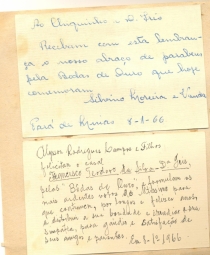 Ao Chiquinho e D. Inês
Recebam com esta lembran-
ça o nosso abraço de parabens
pelas Bodas de Ouro que hoje
comemoram.
Silvino Moreira e
Pará de Minas, 8-1-66
Rodrigues Campos e Filhos
felicitar o casal
Francisco Teodoro
pelas "Bodas de Ouro", e formulam os
mais ardentes votos
que continuem, por longos e felizes anos
a distribuir a sua bondade e
simpatia, para gaudio e satisfação de
seus amigos e parentes. Em 8-1-1966